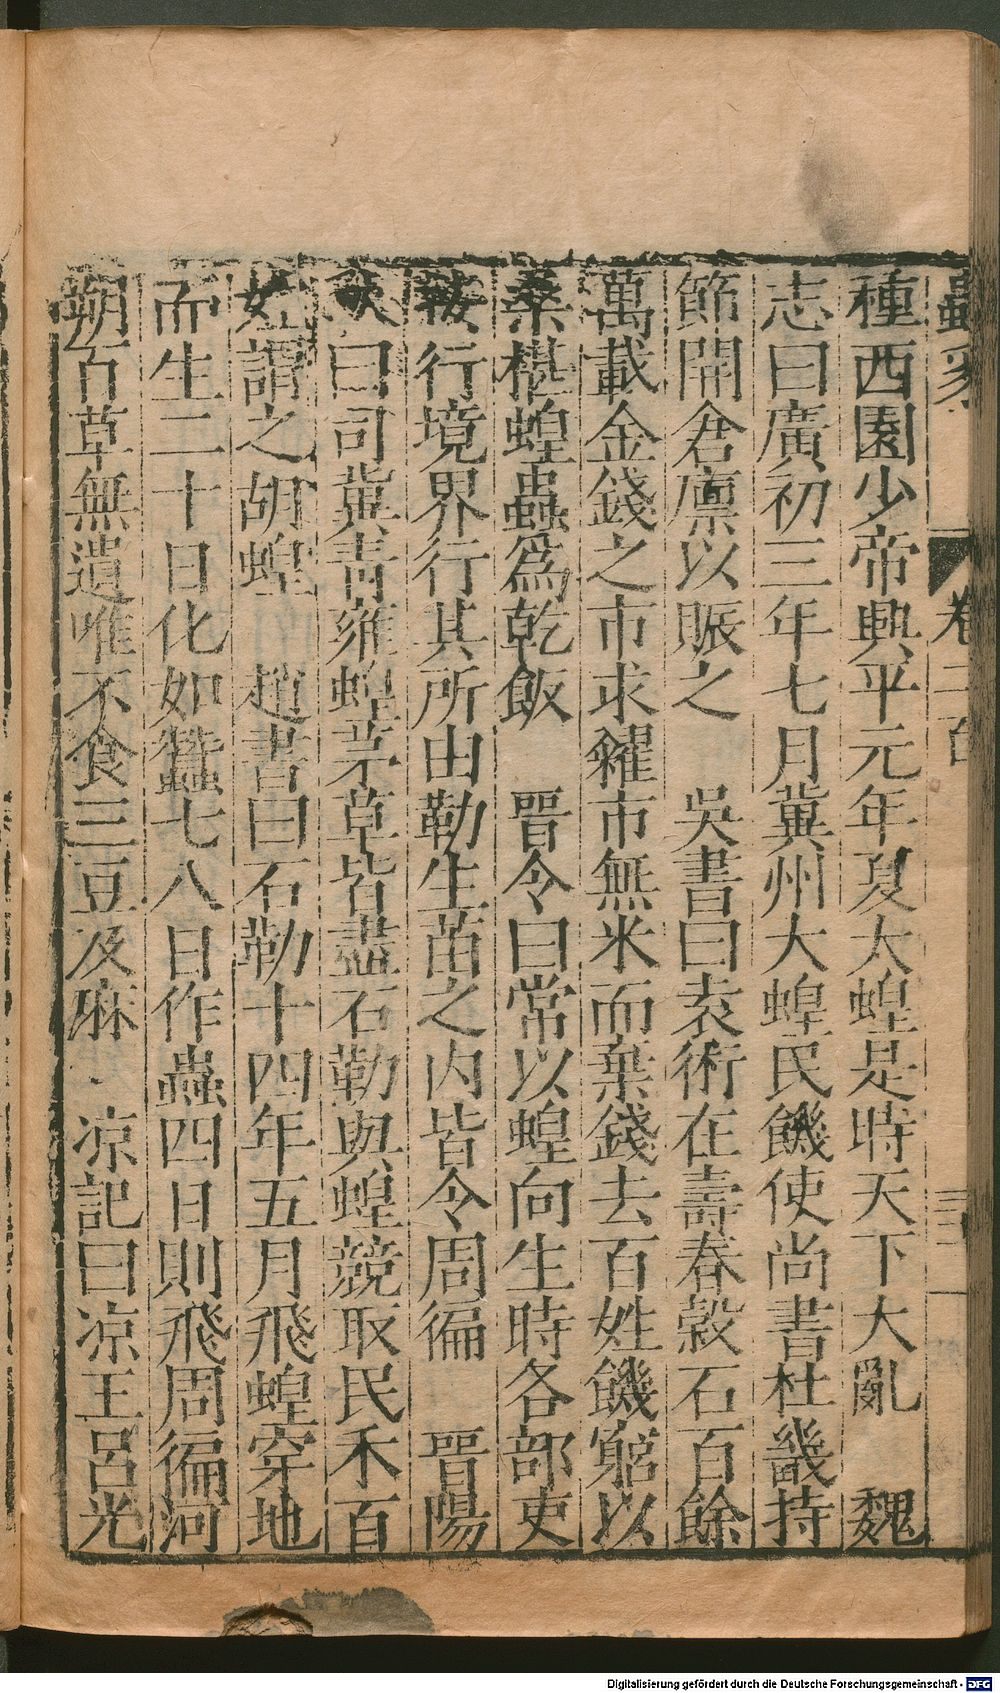 蟲豸 卷二百 三十一
種西園少帝興平元年夏大蝗是時天下大亂 魏
志曰廣初三年七月冀州大蝗民饑使尚書杜畿持
節開倉廩以賑之 吳書曰袁術在壽春穀石百餘
萬載金錢之市求糴市無米而棄錢去百姓饑窮以
桑椹蝗蟲為乾飯 晉令曰常以蝗向生時各部吏
按行境界行其所由勒生苗之内皆令周徧 晉陽
秋曰司冀青雍蝗茅草皆盡石勒與蝗競取民禾百
姓謂之胡蝗 趙書曰石勒十四年五月飛蝗穿地
而生二十日化如蠶七八日作蟲四日則飛周徧河
朔百草無遺唯不食三豆及麻 凉記曰凉王呂光
Digitalisierung gefördert durch die Deutsche Forschungsgemeinschaft - DFG